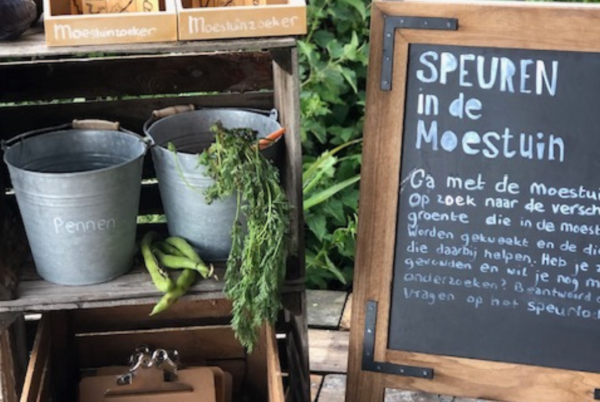 Moestuinzoeker
Moestuinzoeker
Pennen
SPEUREN
in de
Moestuin
Ga met de moestui
op zoek naar de versch
groente die in de moest
worden gekweekt en de die
die daarbij helpen. Heb je z
gevonden en wil je nog m
onderzoeken? Beantwoord d
vragen op het speurlo